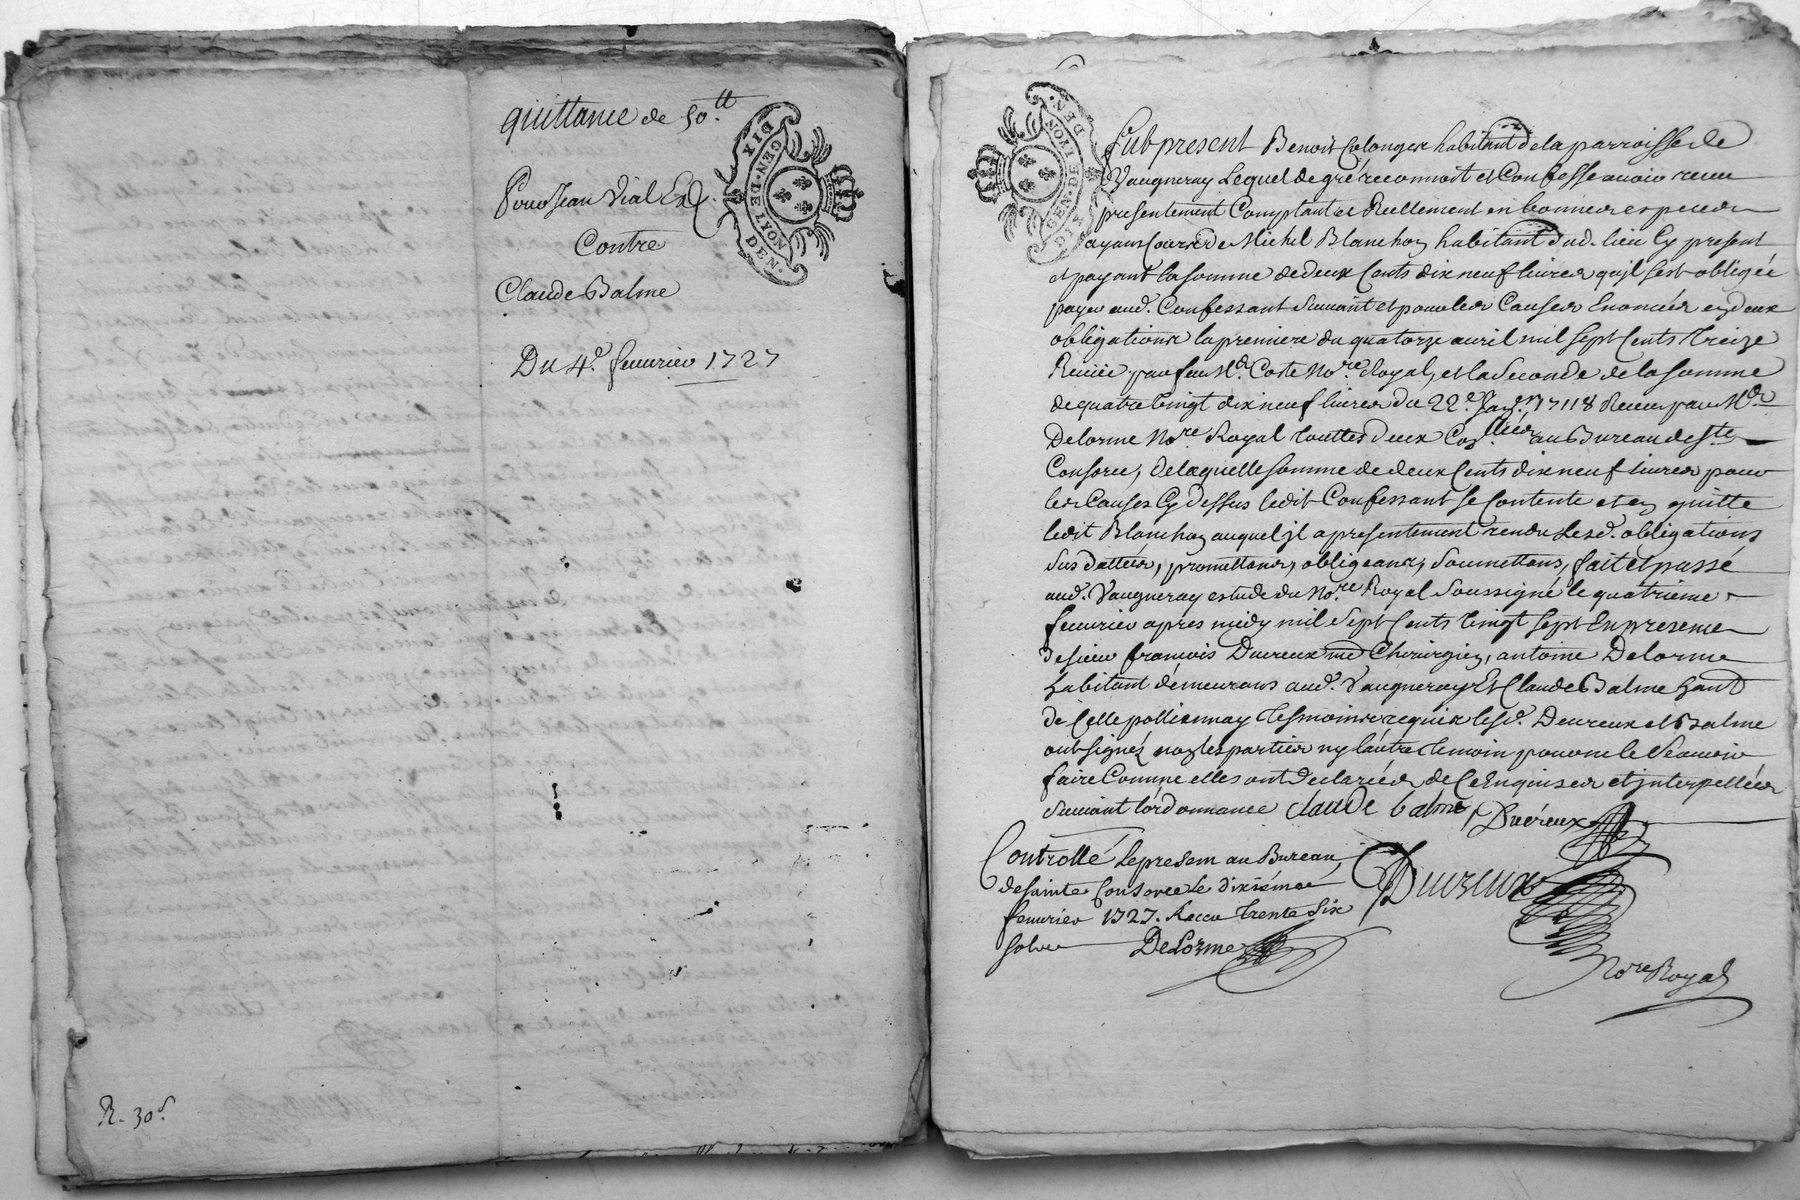 quittance de 50.tt
Pour Jean Vial
Contre
Claude Balme
Du 4.e feuurier 1727
R. 30s.
DIX
GEN. DE LYON
DEN.
DEN.
GEN. DE LYON
DIX
Fut present Benoit habitant de la parroisse de
Vaugneray Lequel de gré reconnoit et Confesse auoir receu
presentement Comptant et Reellement en bonnes especes
ayans Cours de Michel Blanchon habitant dud. lieu Cy present
et payant la somme de deux Cents dix neuf liures qu'jl s'est obligée
payer aud. Confessant Suiuant et pour les Causes Enoncées en deux
obligations la premiere du quatorze auril mil sept Cents Treize
Receüe par feu Me. Coste Nore. Royal, et la Seconde de la somme
de quatre Vingt dix neuf liures du 22e. 1718 Receu par Me.
Delorme Nore Royal Touttes deux au Bureau de Ste
Consorce, de laquelle somme de deux Cents dix neuf liures pour
les Causes Cy dessus ledit Confessant se Contente et en quitte
ledit Blanchon auquel jl a presentement rendu Lesd. obligations
Sus dattées, promettans, obligeans, Soumettans, fait et passé
aud. Vaugneray estude du Nore Royal Soussigné le quatrieme
feuurier apres midy mil Sept Cents Vingt Sept En presence
de sieur francois Ducreux me Chirurgien, antoine Delorme
habitant demeurans aud. Vaugneray Et Claude Balme
de Celle pollionnay Tesmoins requis lesd. Ducreux et Balme
ont signéz non les parties ny l'autre Temoin pour ne le Scauoir
faire Comme elles ont declarées de Ce Enquises et jnterpellées
Suiuant l'ordonnance Claude balme Ducreux
Controllé Le present au Bureau
de Sainte Consorce Le dixiéme Ducreux
feuurier 1727. Receu Trente Six
sols DeLorme
Nore Royal